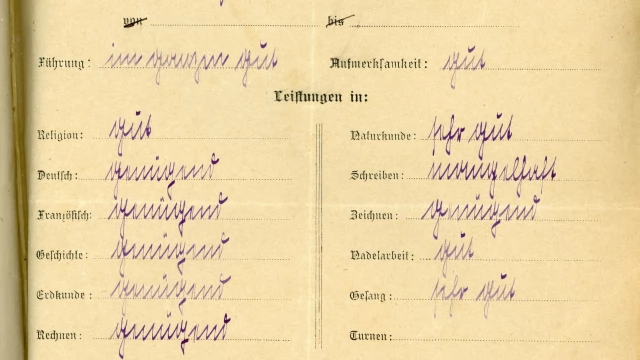 von bis
Führung: im ganzen gut Aufmerksamkeit: gut
Leistungen in:
Religion: gut Naturkunde: sehr gut
Deutsch: genügend Schreiben: mangelhaft
Französisch: genügend Zeichnen: genügend
Geschichte: genügend Nadelarbeit: gut
Erdkunde: genügend Gesang: sehr gut
Rechnen: genügend Turnen: